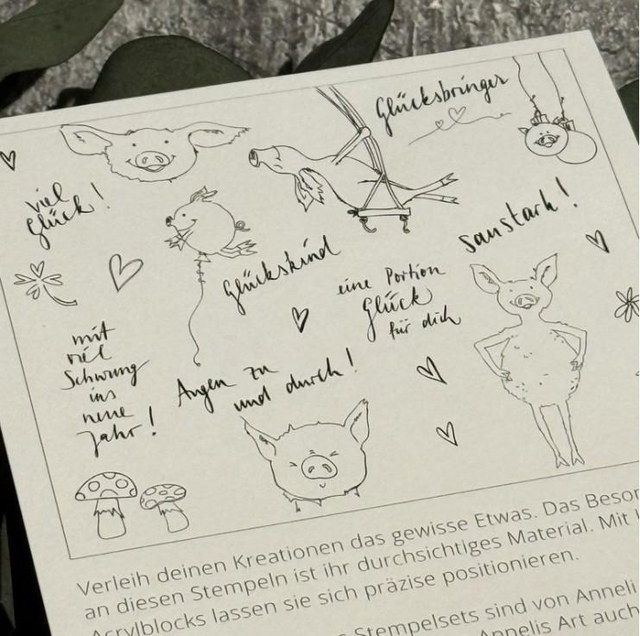 Glücksbringer
viel
Glück!
saustark!
Glückskind
eine Portion
Glück
für dich
mit
viel
Schwung
ins
neue
Jahr!
Augen zu
und durch!
Verleih deinen Kreationen das gewisse Etwas. Das
an diesen Stempeln ist ihr durchsichtiges Material. Mit
Acrylblocks lassen sie sich präzise positionieren.
Stempelsets sind von
Annelis Art auch